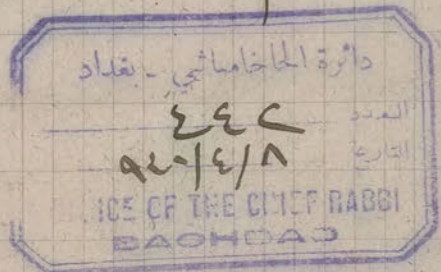 دائرة الحاخامباشي - بغداد
العدد ٤٤٢
التاريخ ٩٤٠/٤/٨
ICE OF THE CHIEF RABBI
BAGHDAD